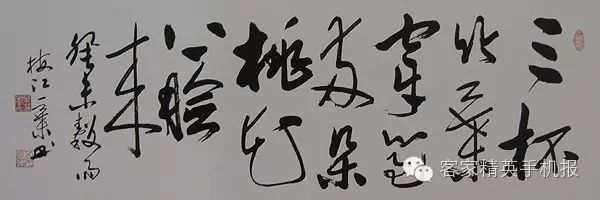 三杯
竹葉
穿心过
两朵
桃花
上脸
来
癸未穀雨
梅江
书
客家精英手机报